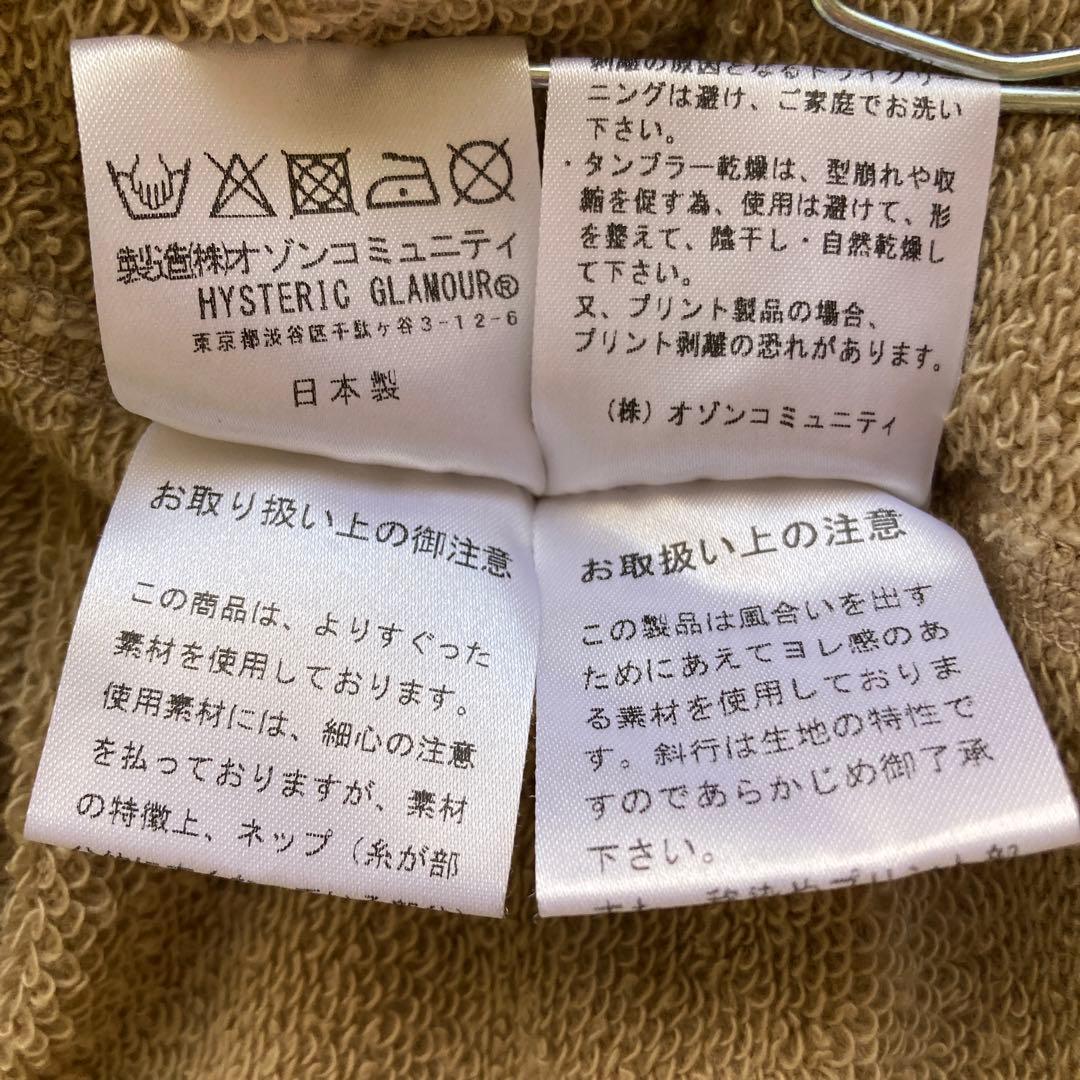 製造(株)オゾンコミュニティ
HYSTERIC GLAMOUR®
東京都渋谷区千駄ヶ谷3-12-6
日本製
剥離の原因となるドライクリー
ニングは避け、ご家庭でお洗い
下さい。
・タンブラー乾燥は、型崩れや収
縮を促す為、使用は避けて、形
を整えて、陰干し・自然乾燥し
て下さい。
又、プリント製品の場合、
プリント剥離の恐れがあります。
(株)オゾンコミュニティ
お取り扱い上の御注意
この商品は、よりすぐった
素材を使用しております。
使用素材には、細心の注意
を払っておりますが、素材
の特徴上、ネップ(糸が部
お取扱い上の注意
この製品は風合いを出す
ためにあえてヨレ感のあ
る素材を使用しておりま
す。斜行は生地の特性で
すのであらかじめ御了承
下さい。